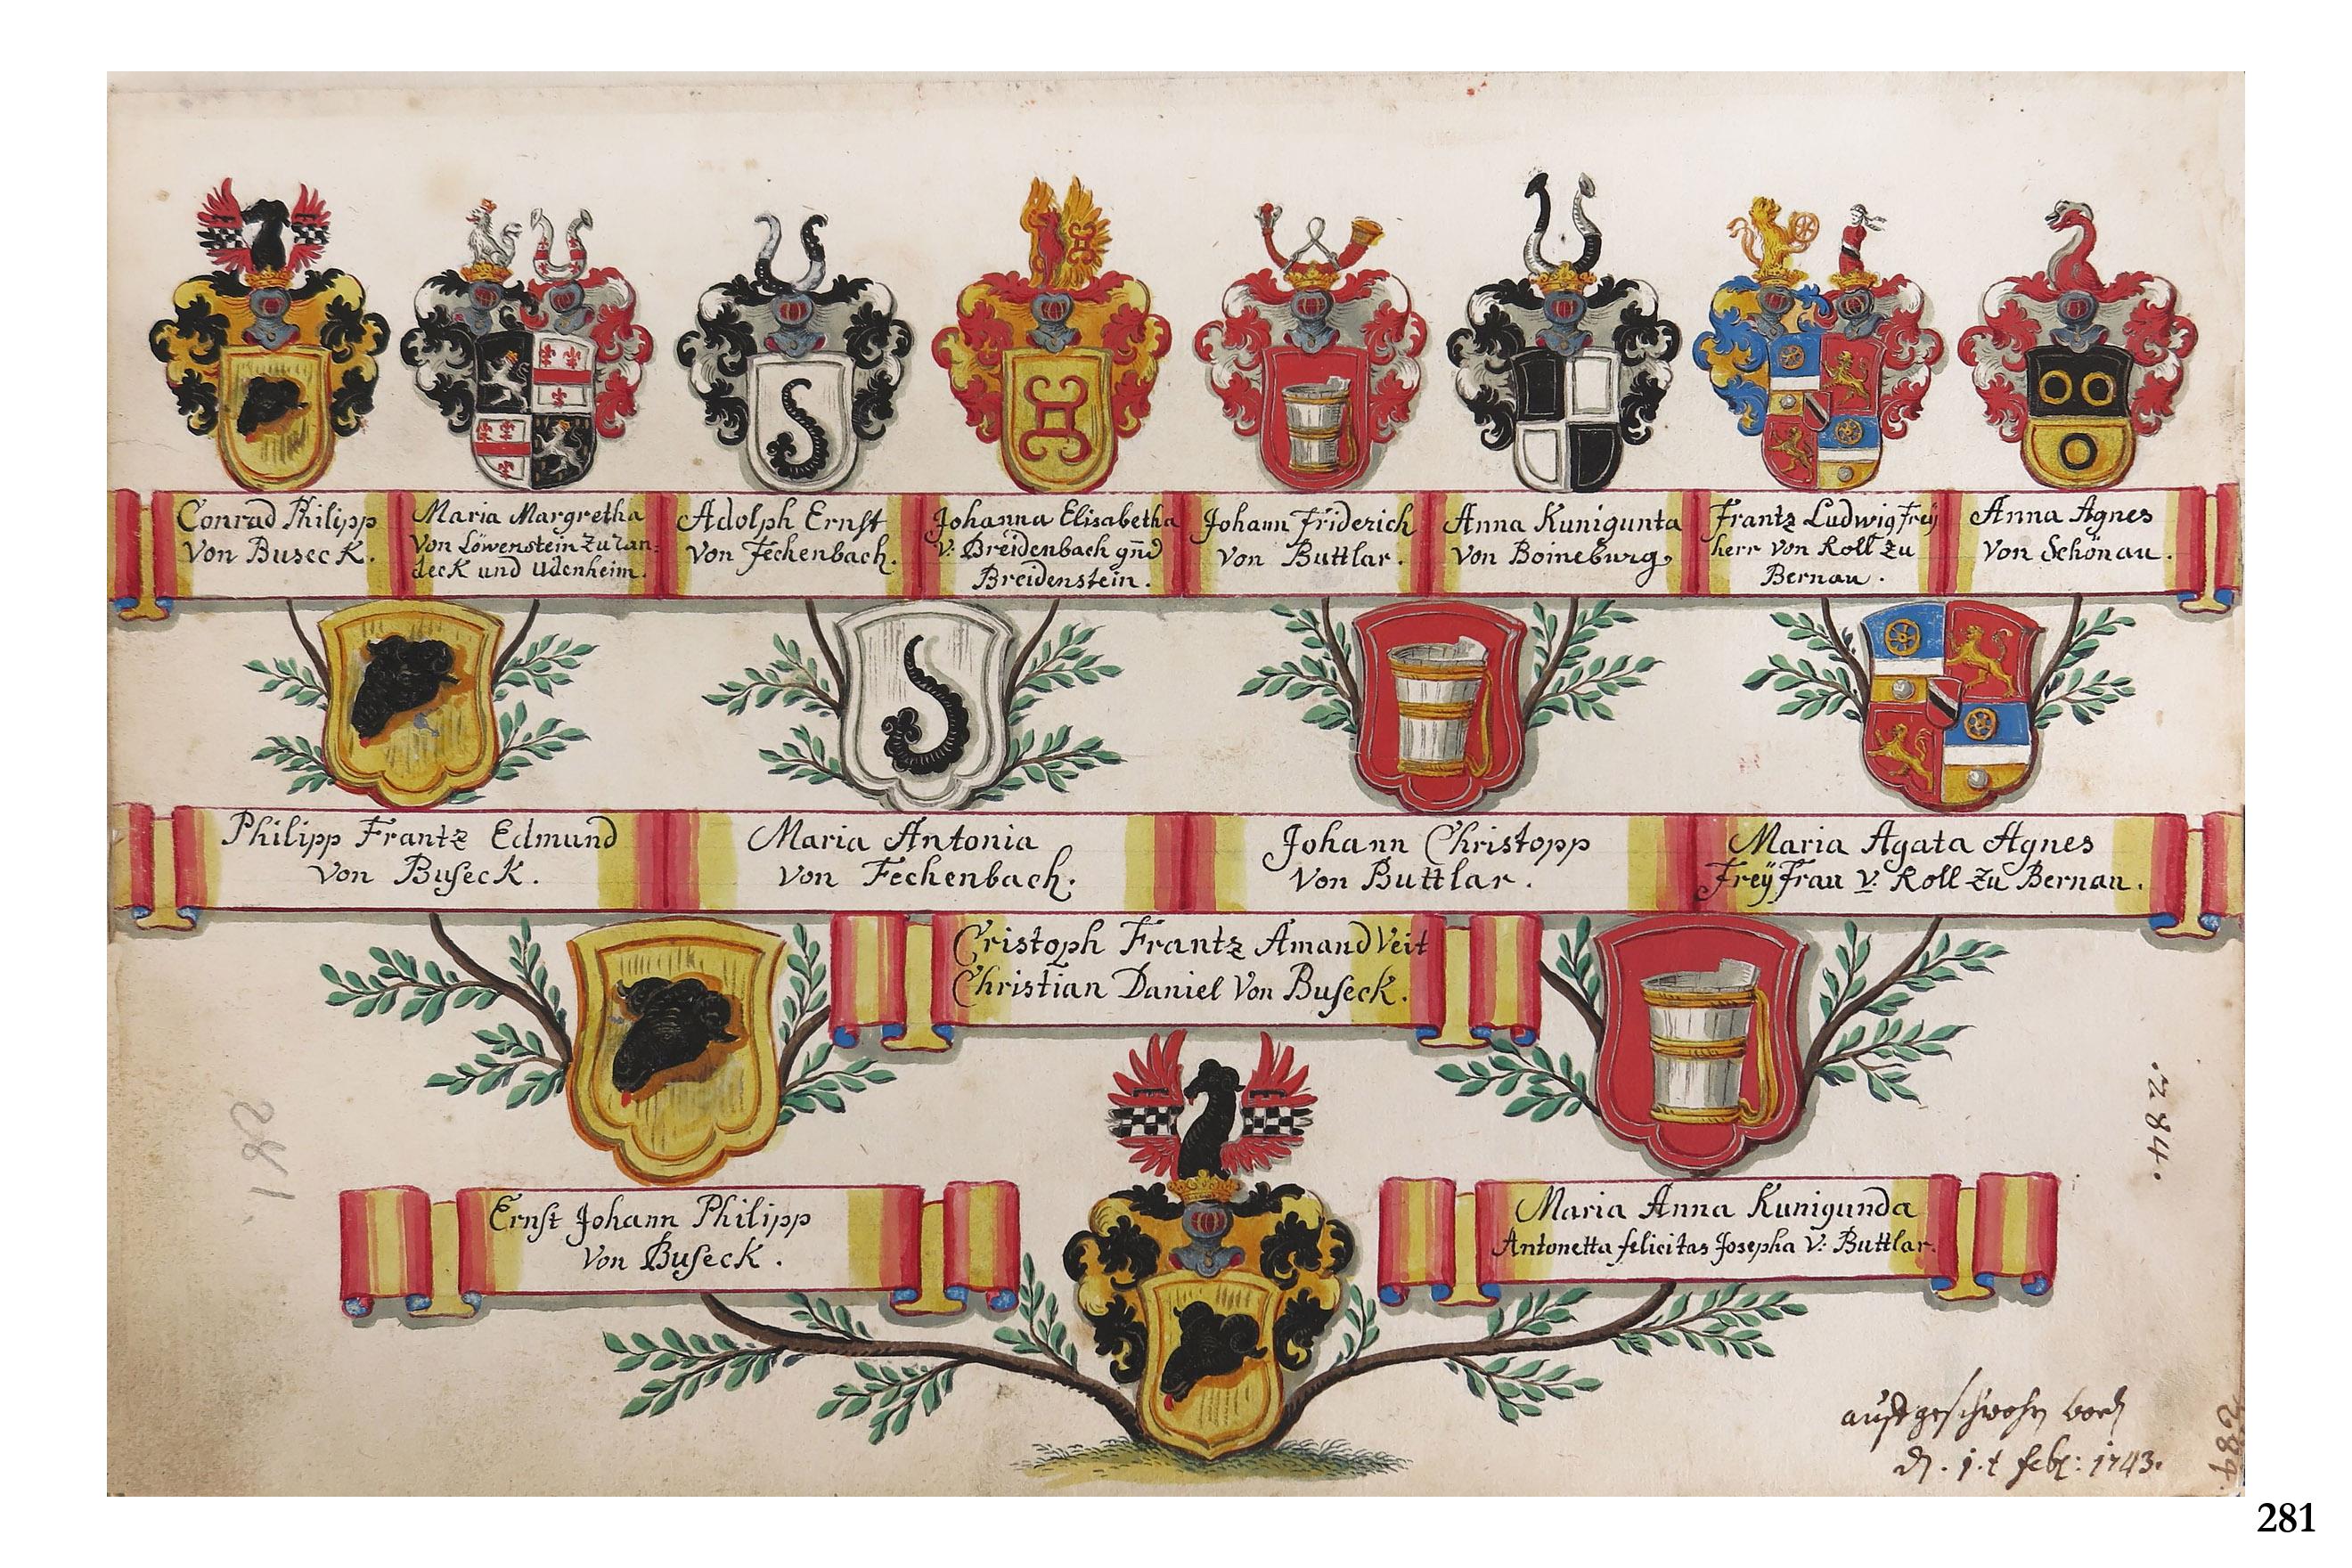 Conrad Philipp
Von Buseck.
Maria Margretha
Von Löwenstein zu ran=
deck und Udenheim.
Adolph Ernst
Von Fechenbach.
Johanna Elisabetha
V: Breidenbach gnd
Breidenstein.
Johann Friderich
Von Buttlar.
Anna Kunigunta
Von Boineburg
Frantz Ludwig Freÿ
herr Von Roll zu
Bernau.
Anna Agnes
Von Schönau.
Philipp Frantz Edmund
Von Buſeck.
Maria Antonia
Von Fechenbach.
Johann Christopp
Von Buttlar.
Maria Agata Agnes
Freÿ Frau V. Roll Zu Bernau.
Cristoph Frantz Amand Veit
Christian Daniel Von Buſeck.
Ernſt Johann Philipp
Von Buſeck.
Maria Anna Kunigunda
Antonetta felicitas Josepha V: Buttlar.
281
.284.
284.
auffgeschwohrn
d. 1.t febr: 1743.
281